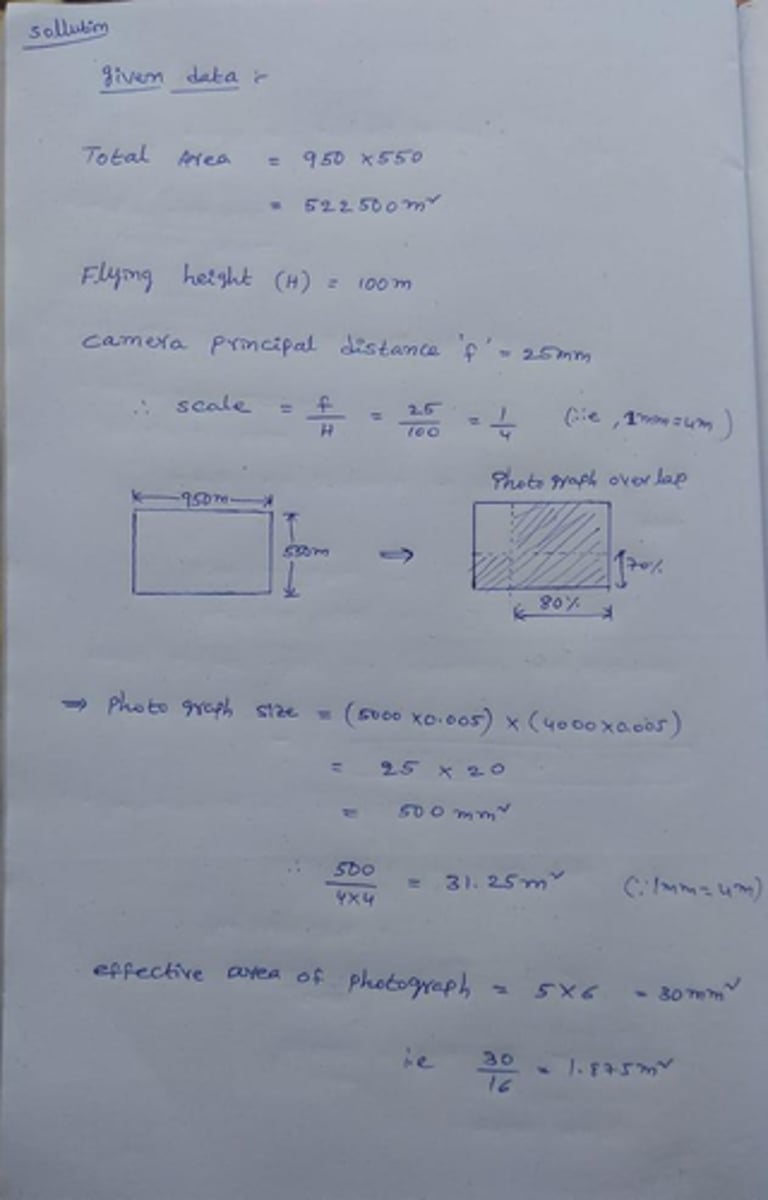 sollution
given data :-
Total Area = 950 x 550
= 522500 m²
Flying height (H) = 100m
camera principal distance 'f' = 25mm
∴ scale = f/H = 25/100 = 1/4 (i.e, 1mm = 4m)
Photo graph over lap
950m
550m
⇒
70%
80%
⇒ Photo graph size = (5000 x 0.005) x (4000 x 0.005)
= 25 x 20
= 500 mm²
∴ 500/4x4 = 31.25 m² (∵ 1mm = 4m)
effective area of photograph = 5 x 6 = 30 mm²
i.e 30/16 = 1.875 m²